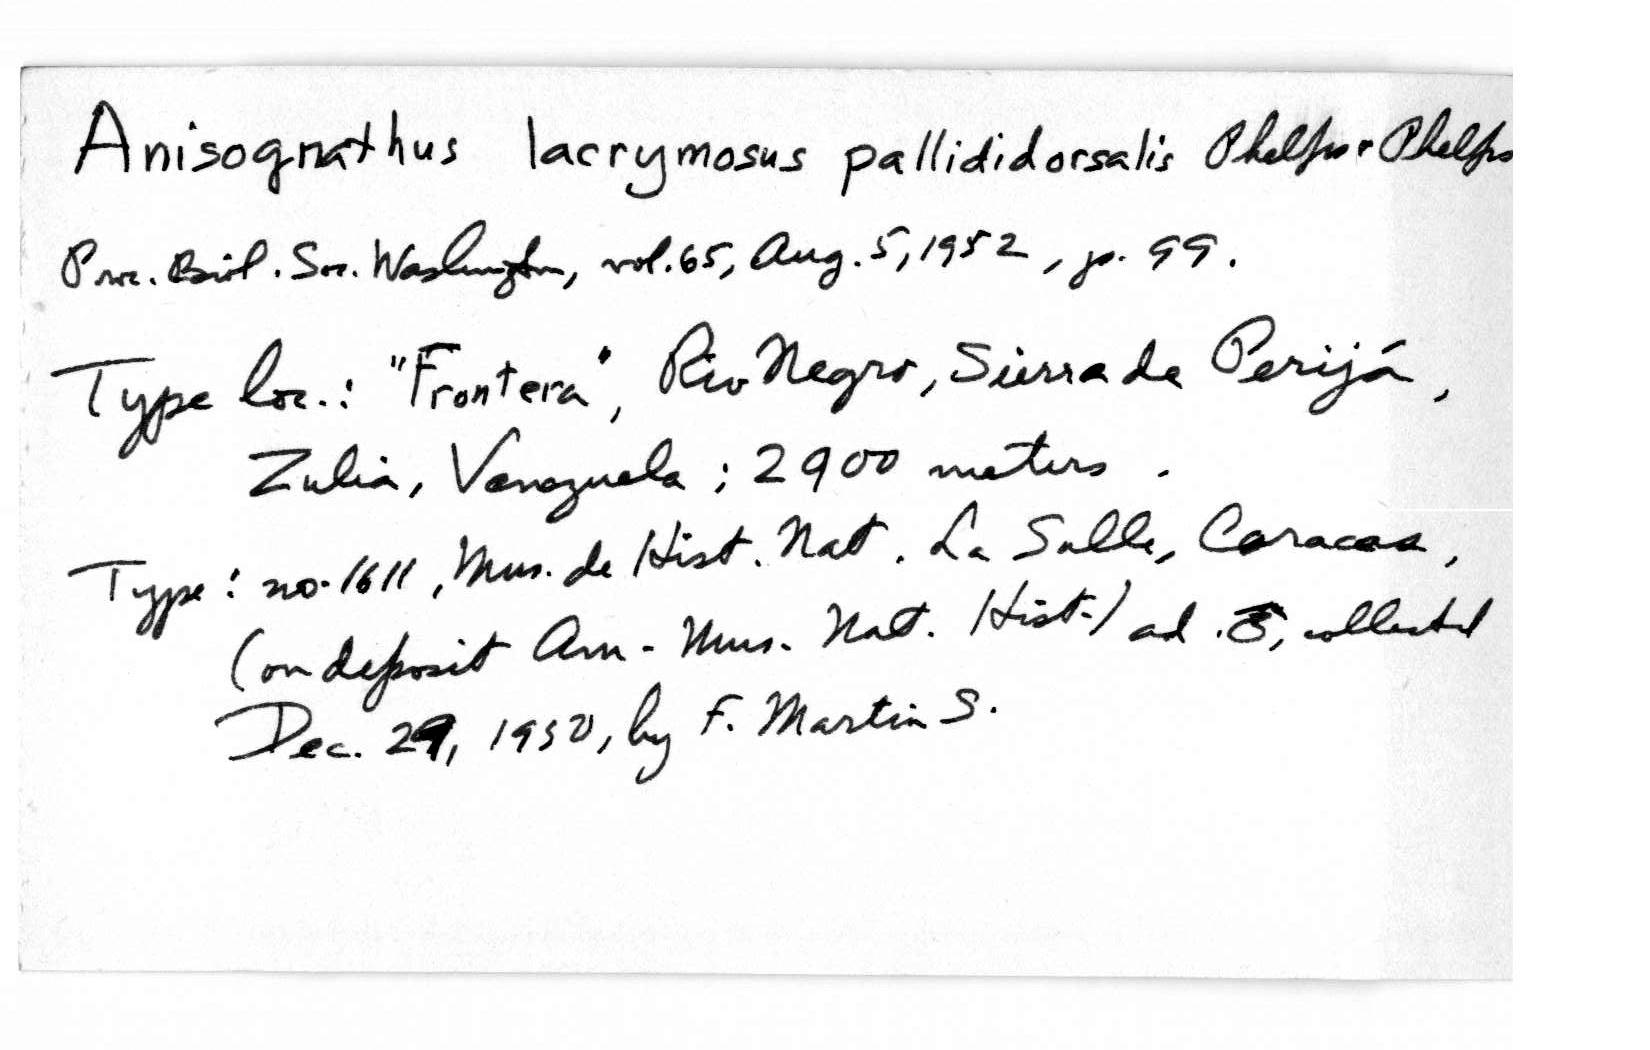 Anisognathus lacrymosus pallididorsalis Phelps & Phelps
Proc. Biol. Soc. Washington, vol. 65, Aug. 5, 1952, p. 99.
Type loc.: "Frontera", Río Negro, Sierra de Perijá,
Zulia, Venezuela; 2900 meters.
Type: no. 1611, Mus. de Hist. Nat. La Salle, Caracas,
(on deposit Am. Mus. Nat. Hist.) ad. ♂, collected
Dec. 29, 1950, by F. Martin S.